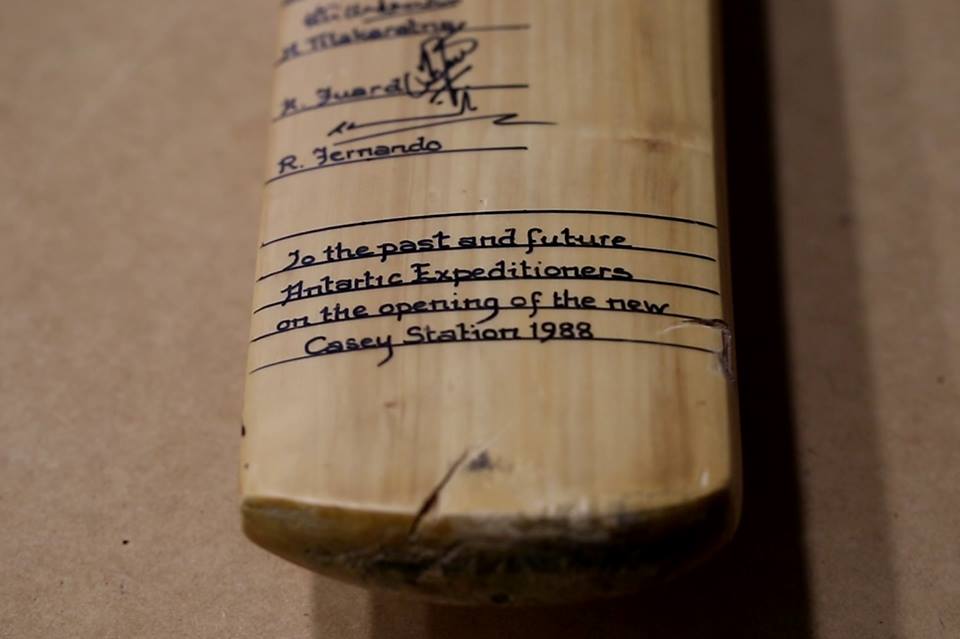 H. Tilakaratne
R. Fernando
To the past and future
Antartic Expeditioners
on the opening of the new
Casey Station 1988